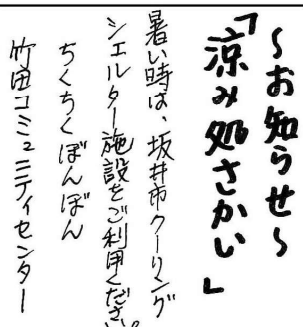 ～お知らせ～
「涼み処さかい」
暑い時は、坂井市クーリング
シェルター施設をご利用ください。
ちくちくぼんぼん
竹田コミュニティセンター